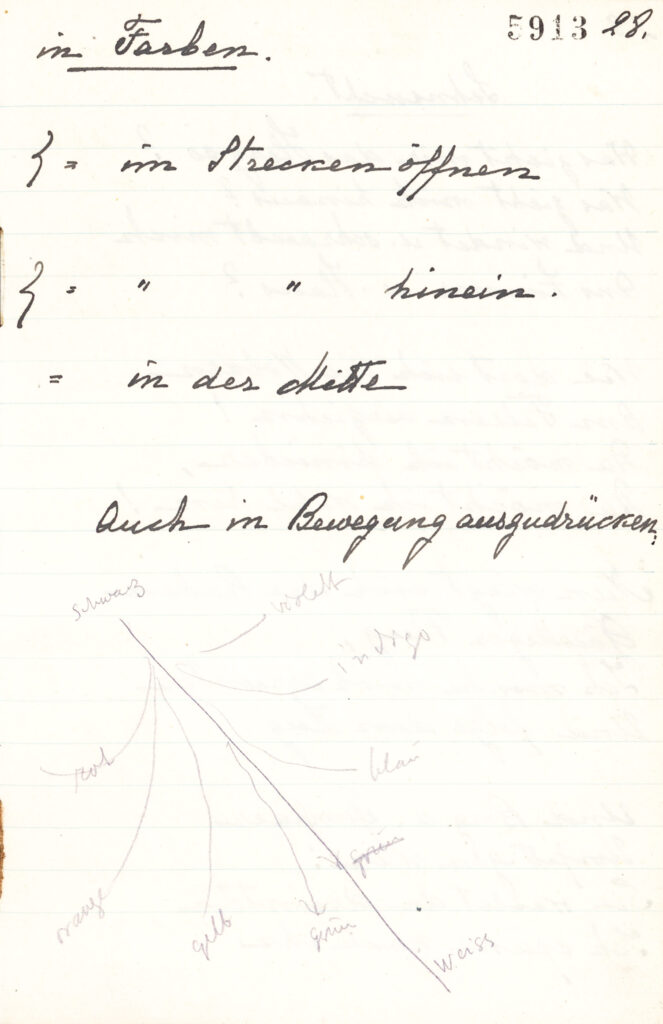 5913 28.
in Farben.
{ = im Strecken öffnen
{ = " " hinein.
= in der Mitte
Auch in Bewegung auszudrücken:
schwarz
violett
indigo
rot
blau
grün
orange
gelb
grün
weiss